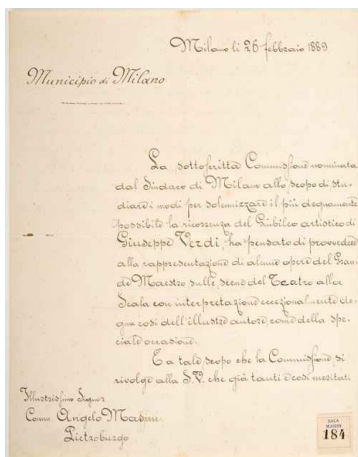 Milano li 26 febbraio 1889
Municipio di Milano
La sottoscritta Commissione nominata
dal Sindaco di Milano allo scopo di stu-
diare i modi per solennizzare il più degnamente
possibile la ricorrenza del Giubileo artistico di
Giuseppe Verdi, ha pensato di provvedere
alla rappresentazione di alcune opere del Gran-
de Maestro sulle scene del Teatro alla
Scala con interpretazione eccezionalmente de-
gna così dell'illustre autore come della spe-
ciale occasione.
E a tale scopo che la Commissione si
rivolge alla S.V. che già tanti e così meritati
Illustrissimo Signor
Comm. Angelo Masini
Pietroburgo
SALA
MASINI
184